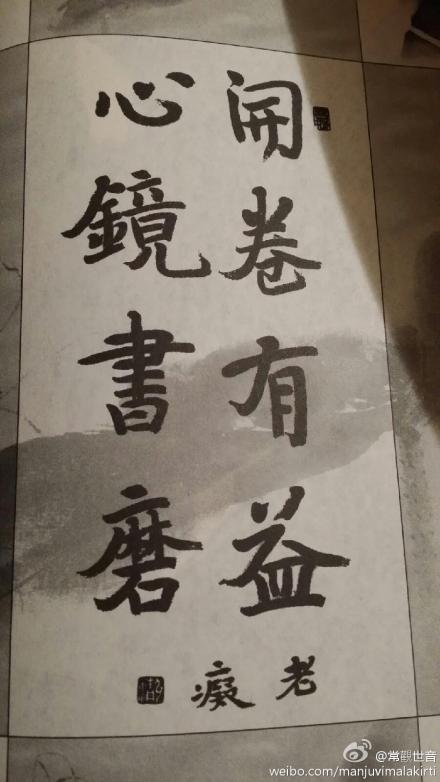 開卷有益
心鏡書磨
老癡
@常觀世音
weibo.com/manjuvimalakirti